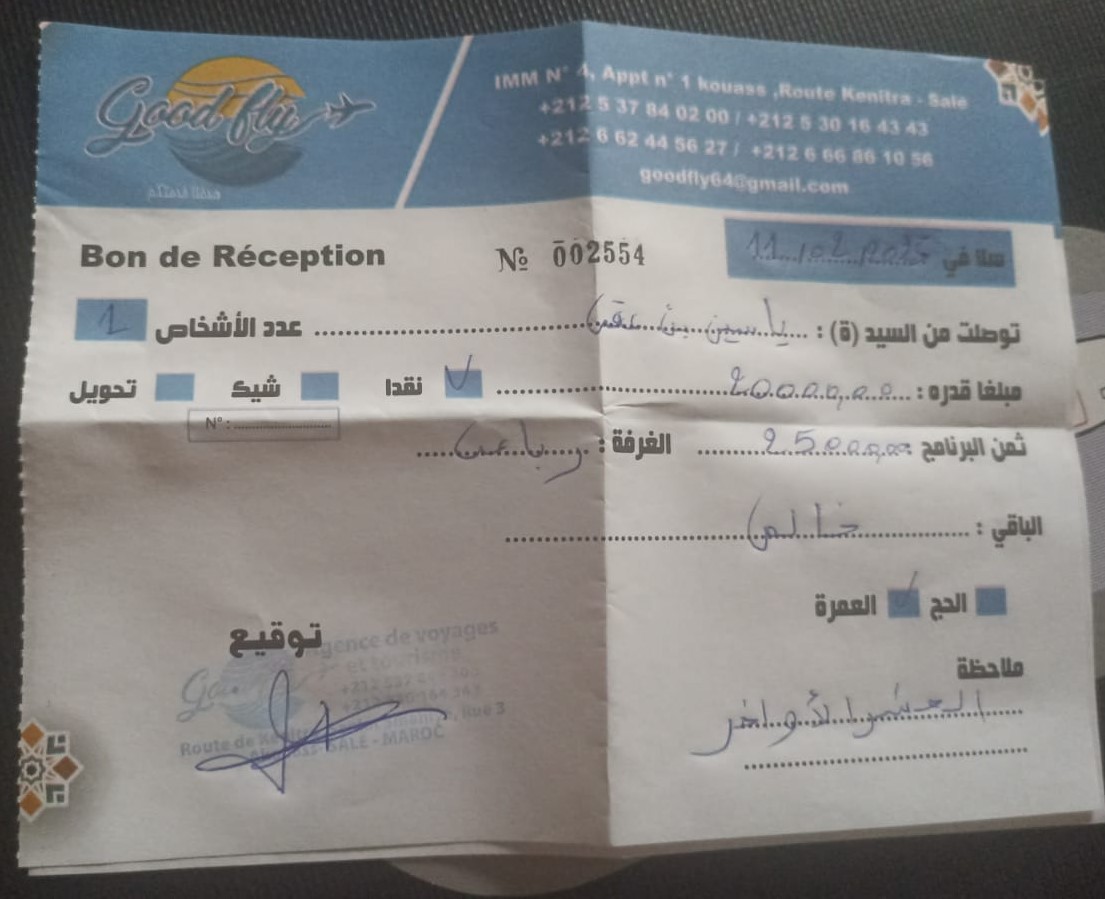 Good fly
IMM N° 4, Appt n° 1 kouass ,Route Kenitra - Sale
+212 5 37 84 02 00 / +212 5 30 16 43 43
+212 6 62 44 56 27 / +212 6 66 86 10 56
goodfly64@gmail.com
Bon de Réception № 002554 سلا في 11/02/2025
توصلت من السيد (ة) : ياسين بن عدد الأشخاص 1
مبلغا قدره : 20000,00 نقدا شيك تحويل
N° :
ثمن البرنامج 25000,00 الغرفة : رباعية
الباقي : خالص
الحج العمرة
توقيع
ملاحظة
العشر الأواخر
Agence de voyages
et tourisme
Route de Rue 3
SALE - MAROC